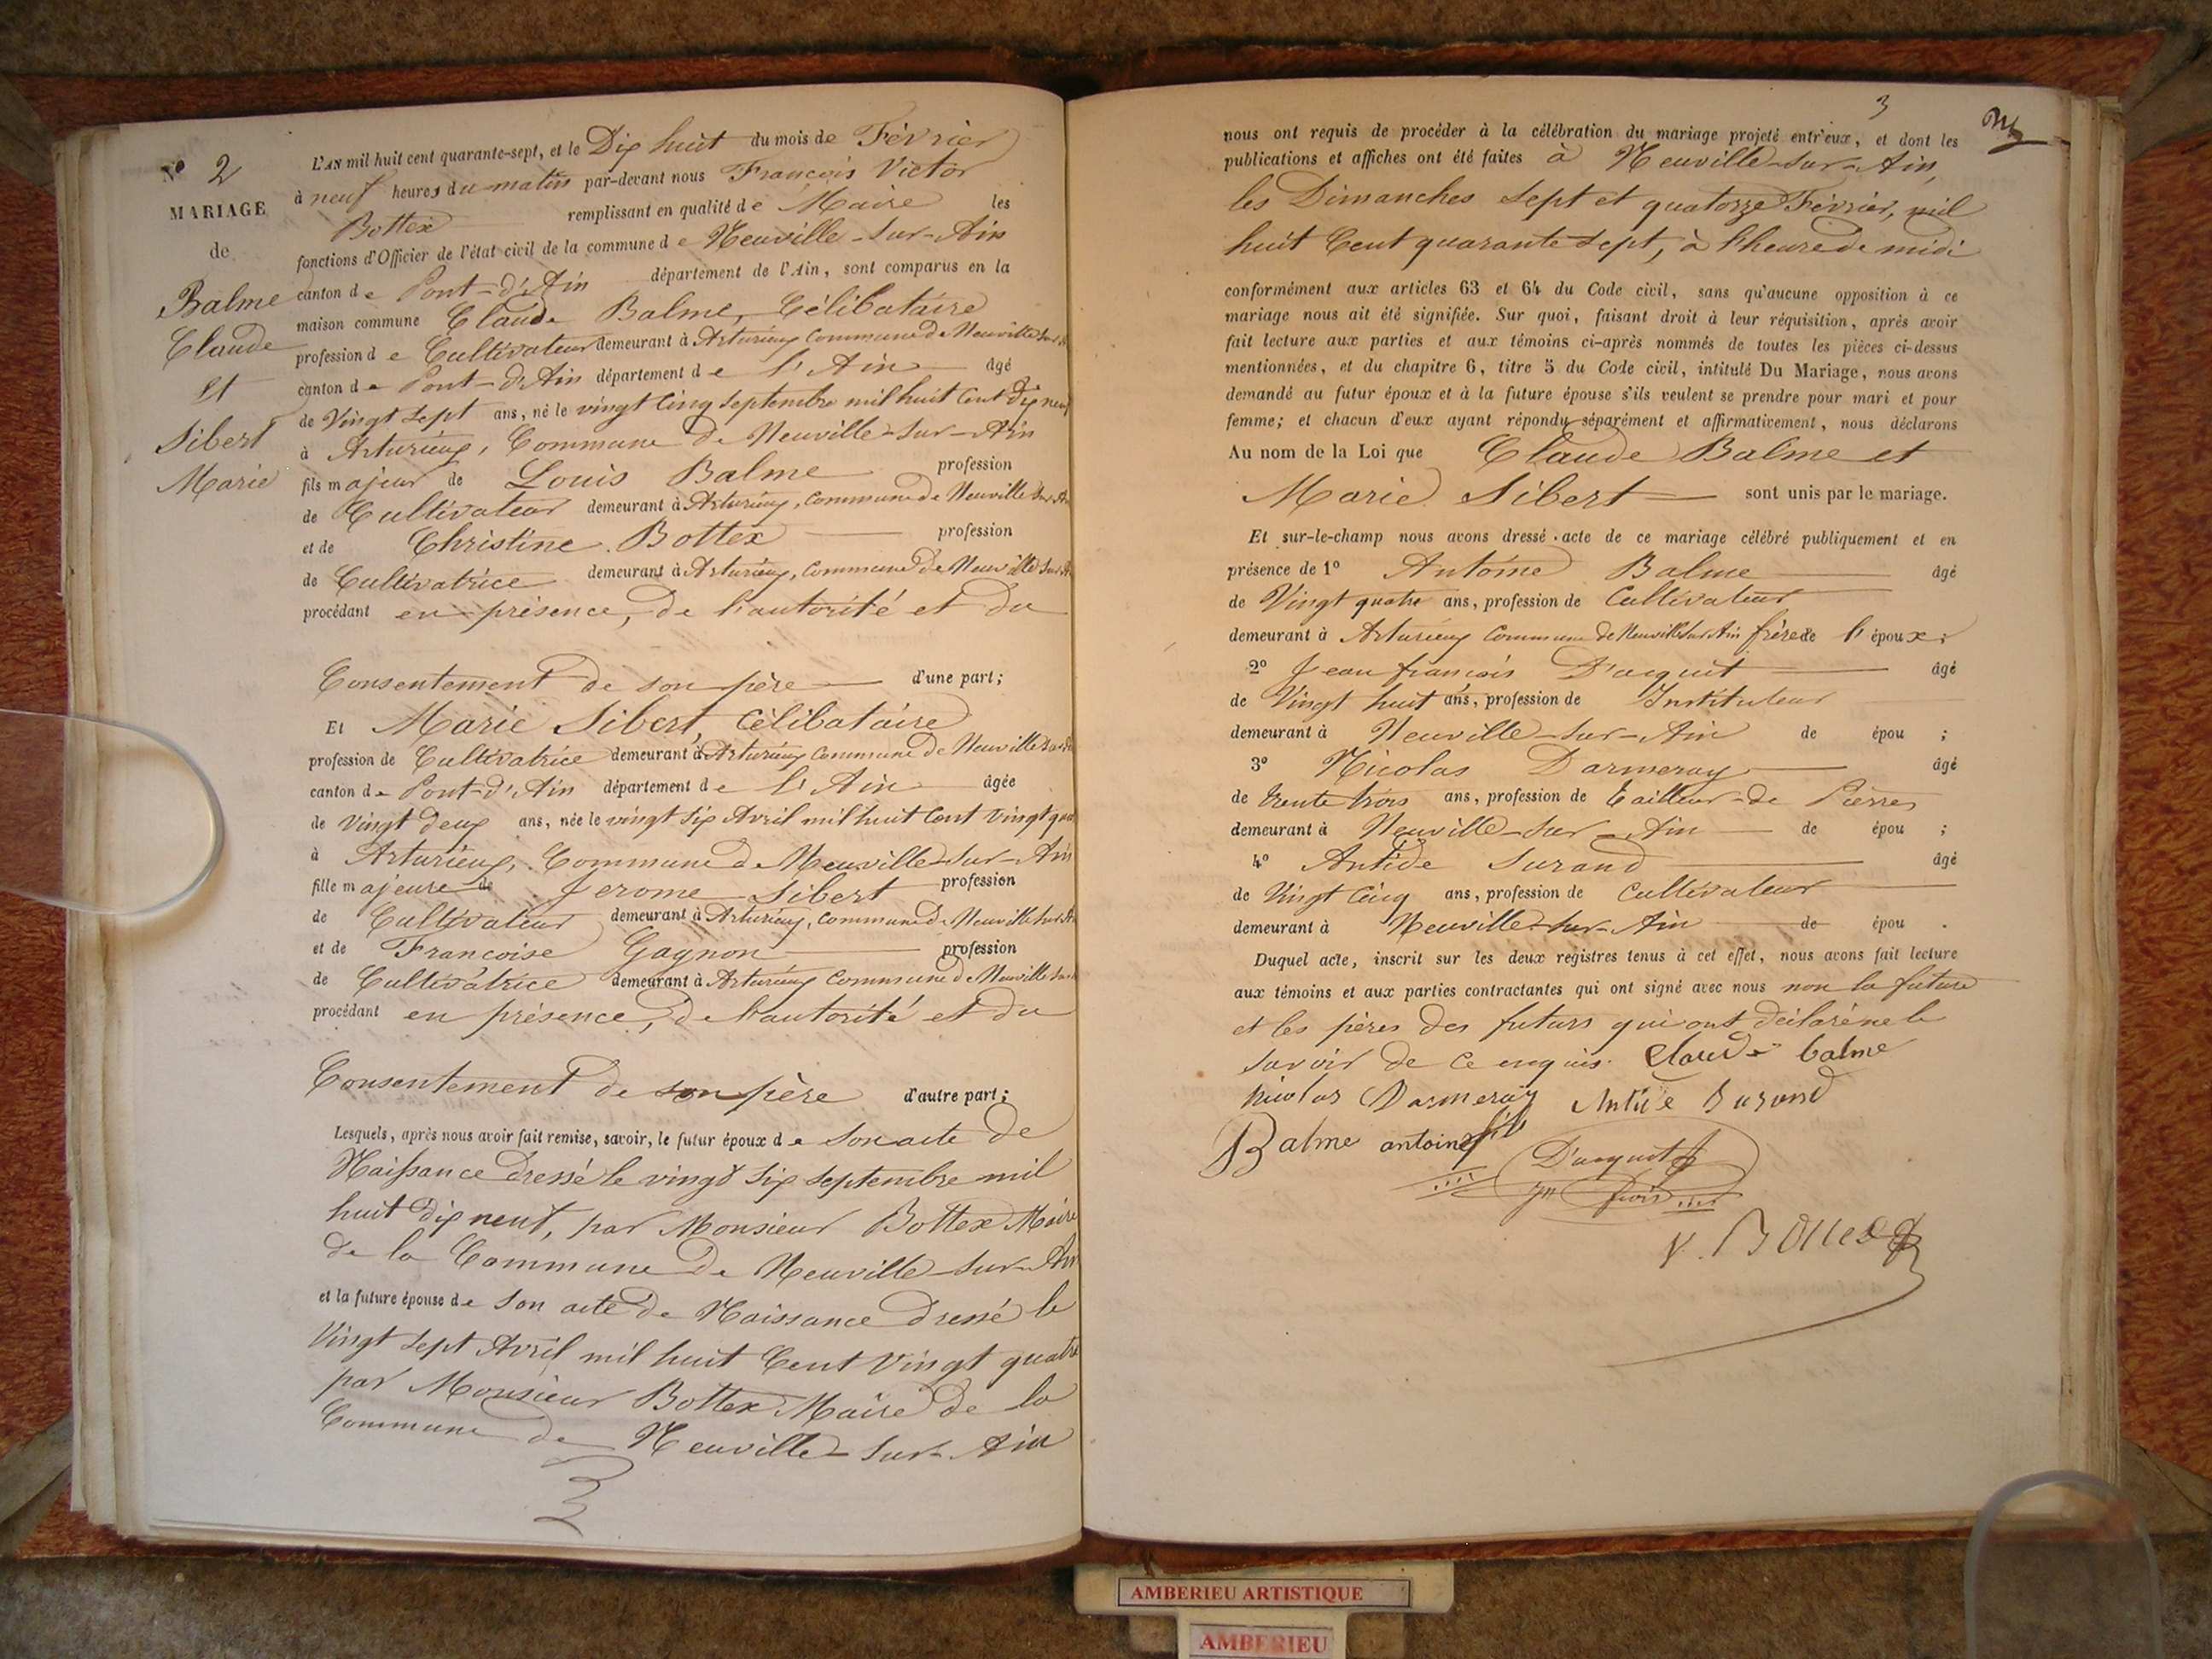 N° 2
MARIAGE
de
Balme
Claude
et
Sibert
Marie
L'AN mil huit cent quarante-sept, et le Dix huit du mois de Février
à neuf heures du matin par-devant nous François Victor
Bottex remplissant en qualité de Maire les
fonctions d'Officier de l'état civil de la commune de Neuville-sur-Ain
canton de Pont-d'Ain département de l'Ain, sont comparus en la
maison commune Claude Balme, Célibataire
profession de Cultivateur demeurant à Arturieux Commune de Neuville sur A
canton de Pont-d'Ain département de l'Ain âgé
de Vingt sept ans, né le vingt cinq septembre mil huit Cent Dix neuf
à Arturieux, Commune de Neuville-sur-Ain
fils majeur de Louis Balme profession
de Cultivateur demeurant à Arturieux, commune de Neuville sur Ain
et de Christine Bottex profession
de Cultivatrice demeurant à Arturieux, commune de Neuville sur A
procédant en présence, de l'autorité et du
Consentement de son père d'une part;
Et Marie Sibert, Célibataire
profession de Cultivatrice demeurant à Arturieux Commune de Neuville sur
canton de Pont-d'Ain département de l'Ain âgée
de Vingt deux ans, née le vingt six Avril mil huit Cent Vingt quat
à Arturieux, Commune de Neuville-sur-Ain
fille majeure de Jerome Sibert profession
de Cultivateur demeurant à Arturieux, commune de Neuville sur A
et de Francoise Gagnon profession
de Cultivatrice demeurant à Arturieux Commune de Neuville sur
procédant en présence, de l'autorité et du
Consentement de son père d'autre part;
Lesquels, après nous avoir fait remise, savoir, le futur époux de son acte de
Naissance dressé le vingt six septembre mil
huit dix neuf, par Monsieur Bottex Maire
de la Commune de Neuville-sur-Ain
et la future épouse de son acte de Naissance dressé le
Vingt sept Avril mil huit Cent Vingt quatre
par Monsieur Bottex Maire de la
Commune de Neuville-sur-Ain
3
nous ont requis de procéder à la célébration du mariage projeté entr'eux, et dont les
publications et affiches ont été faites à Neuville-sur-Ain,
les Dimanches sept et quatorze Février, mil
huit Cent quarante sept, à l'heure de midi
conformément aux articles 63 et 64 du Code civil, sans qu'aucune opposition à ce
mariage nous ait été signifiée. Sur quoi, faisant droit à leur réquisition, après avoir
fait lecture aux parties et aux témoins ci-après nommés de toutes les pièces ci-dessus
mentionnées, et du chapitre 6, titre 5 du Code civil, intitulé Du Mariage, nous avons
demandé au futur époux et à la future épouse s'ils veulent se prendre pour mari et pour
femme; et chacun d'eux ayant répondu séparément et affirmativement, nous déclarons
Au nom de la Loi que Claude Balme et
Marie Sibert sont unis par le mariage.
Et sur-le-champ nous avons dressé acte de ce mariage célébré publiquement et en
présence de 1° Antoine Balme âgé
de Vingt quatre ans, profession de Cultivateur
demeurant à Arturieux Commune de Neuville sur Ain frère de l'époux;
2° Jean françois Dacquit âgé
de Vingt huit ans, profession de Instituteur
demeurant à Neuville-sur-Ain de épou ;
3° Nicolas Darmeray âgé
de trente trois ans, profession de tailleur de Pierres
demeurant à Neuville-sur-Ain de épou ;
4° Antide Surand âgé
de Vingt cinq ans, profession de Cultivateur
demeurant à Neuville-sur-Ain de épou .
Duquel acte, inscrit sur les deux registres tenus à cet effet, nous avons fait lecture
aux témoins et aux parties contractantes qui ont signé avec nous non la future
et les pères des futurs qui ont déclaré ne le
savoir de ce enquis. Claude balme
Nicolas Darmeray Antide Surand
Balme antoine fils
Dacquit
jn fcois
V. Bottex
AMBERIEU ARTISTIQUE
AMBERIEU